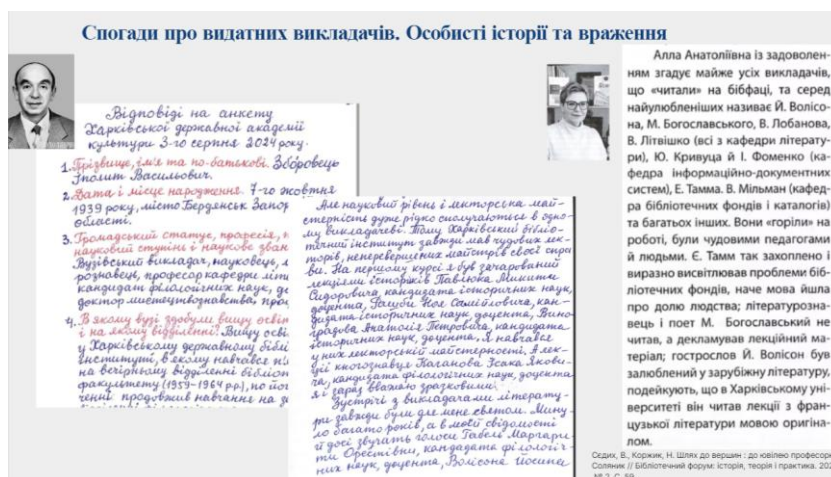 Спогади про видатних викладачів. Особисті історії та враження
Відповіді на анкету
Харківської державної академії
культури 3-го серпня 2024 року.
1. Прізвище, ім'я та по-батькові. Зборовець
Іполит Васильович.
2. Дата і місце народження. 7-го жовтня
1939 року, місто Бердянськ Запор
області.
3. Громадський статус, професія, н
науковий ступінь і наукове зван
Вузівський викладач, науковець, л
рознавець, професор кафедри літ
кандидат філологічних наук, де
доктор мистецтвознавства, про
4. В якому вузі здобули вищу освіт
і на якому відділенні? Вищу осві
у Харківському державному бібл
інституті, в якому навчався п
на вечірньому відділенні бібліо
факультету (1959-1964 р.р.), по
ченні продовжив навчання на з
Але науковий рівень і лекторська май-
стерність дуже рідко сполучаються в одно-
му викладачеві. Тому Харківський бібліо-
течний інститут завжди мав чудових лек-
торів, неперевершених майстрів своєї спра-
ви. На першому курсі я був зачарований
лекціями істориків Павлюка Микити
Сидоровича кандидата історичних наук,
доцента, Ноя Самійловича, кан-
дидата історичних наук, доцента, Вино-
градова Анатолія Петровича, кандидата
історичних наук, доцента, я навчався
у них лекторській майстерності. А лек-
ції книгознавця Каганова Ісака Якови-
ча, кандидата філологічних наук, доцента
я і зараз вважаю зразковими.
Зустрічі з викладачами літерату-
ри завжди були для мене святом. Мину-
ло багато років, а в моїй свідомості
й досі звучать голоси Габель Маргари-
ти Орестівни, кандидата філологіч-
них наук, доцента, Волісона Йосипа
Алла Анатоліївна із задоволен-
ням згадує майже усіх викладачів,
що «читали» на бібфаці, та серед
найулюбленіших називає Й. Волісо-
на, М. Богославського, В. Лобанова,
В. Літвішко (всі з кафедри літерату-
ри), Ю. Кривуца й І. Фоменко (ка-
федра інформаційно-документних
систем), Е. Тамма. В. Мільман (кафед-
ра бібліотечних фондів і каталогів)
та багатьох інших. Вони «горіли» на
роботі, були чудовими педагогами
й людьми. Є. Тамм так захоплено і
виразно висвітлював проблеми біб-
ліотечних фондів, наче мова йшла
про долю людства; літературозна-
вець і поет М. Богославський не
читав, а декламував лекційний ма-
теріал; гострослов Й. Волісон був
залюблений у зарубіжну літературу,
подейкують, що в Харківському уні-
верситеті він читав лекції з фран-
цузької літератури мовою оригіна-
лом.
Сєдих, В., Коржик, Н. Шлях до вершин : до ювілею професорк
Соляник // Бібліотечний форум: історія, теорія і практика. 202
№ 2. С. 59